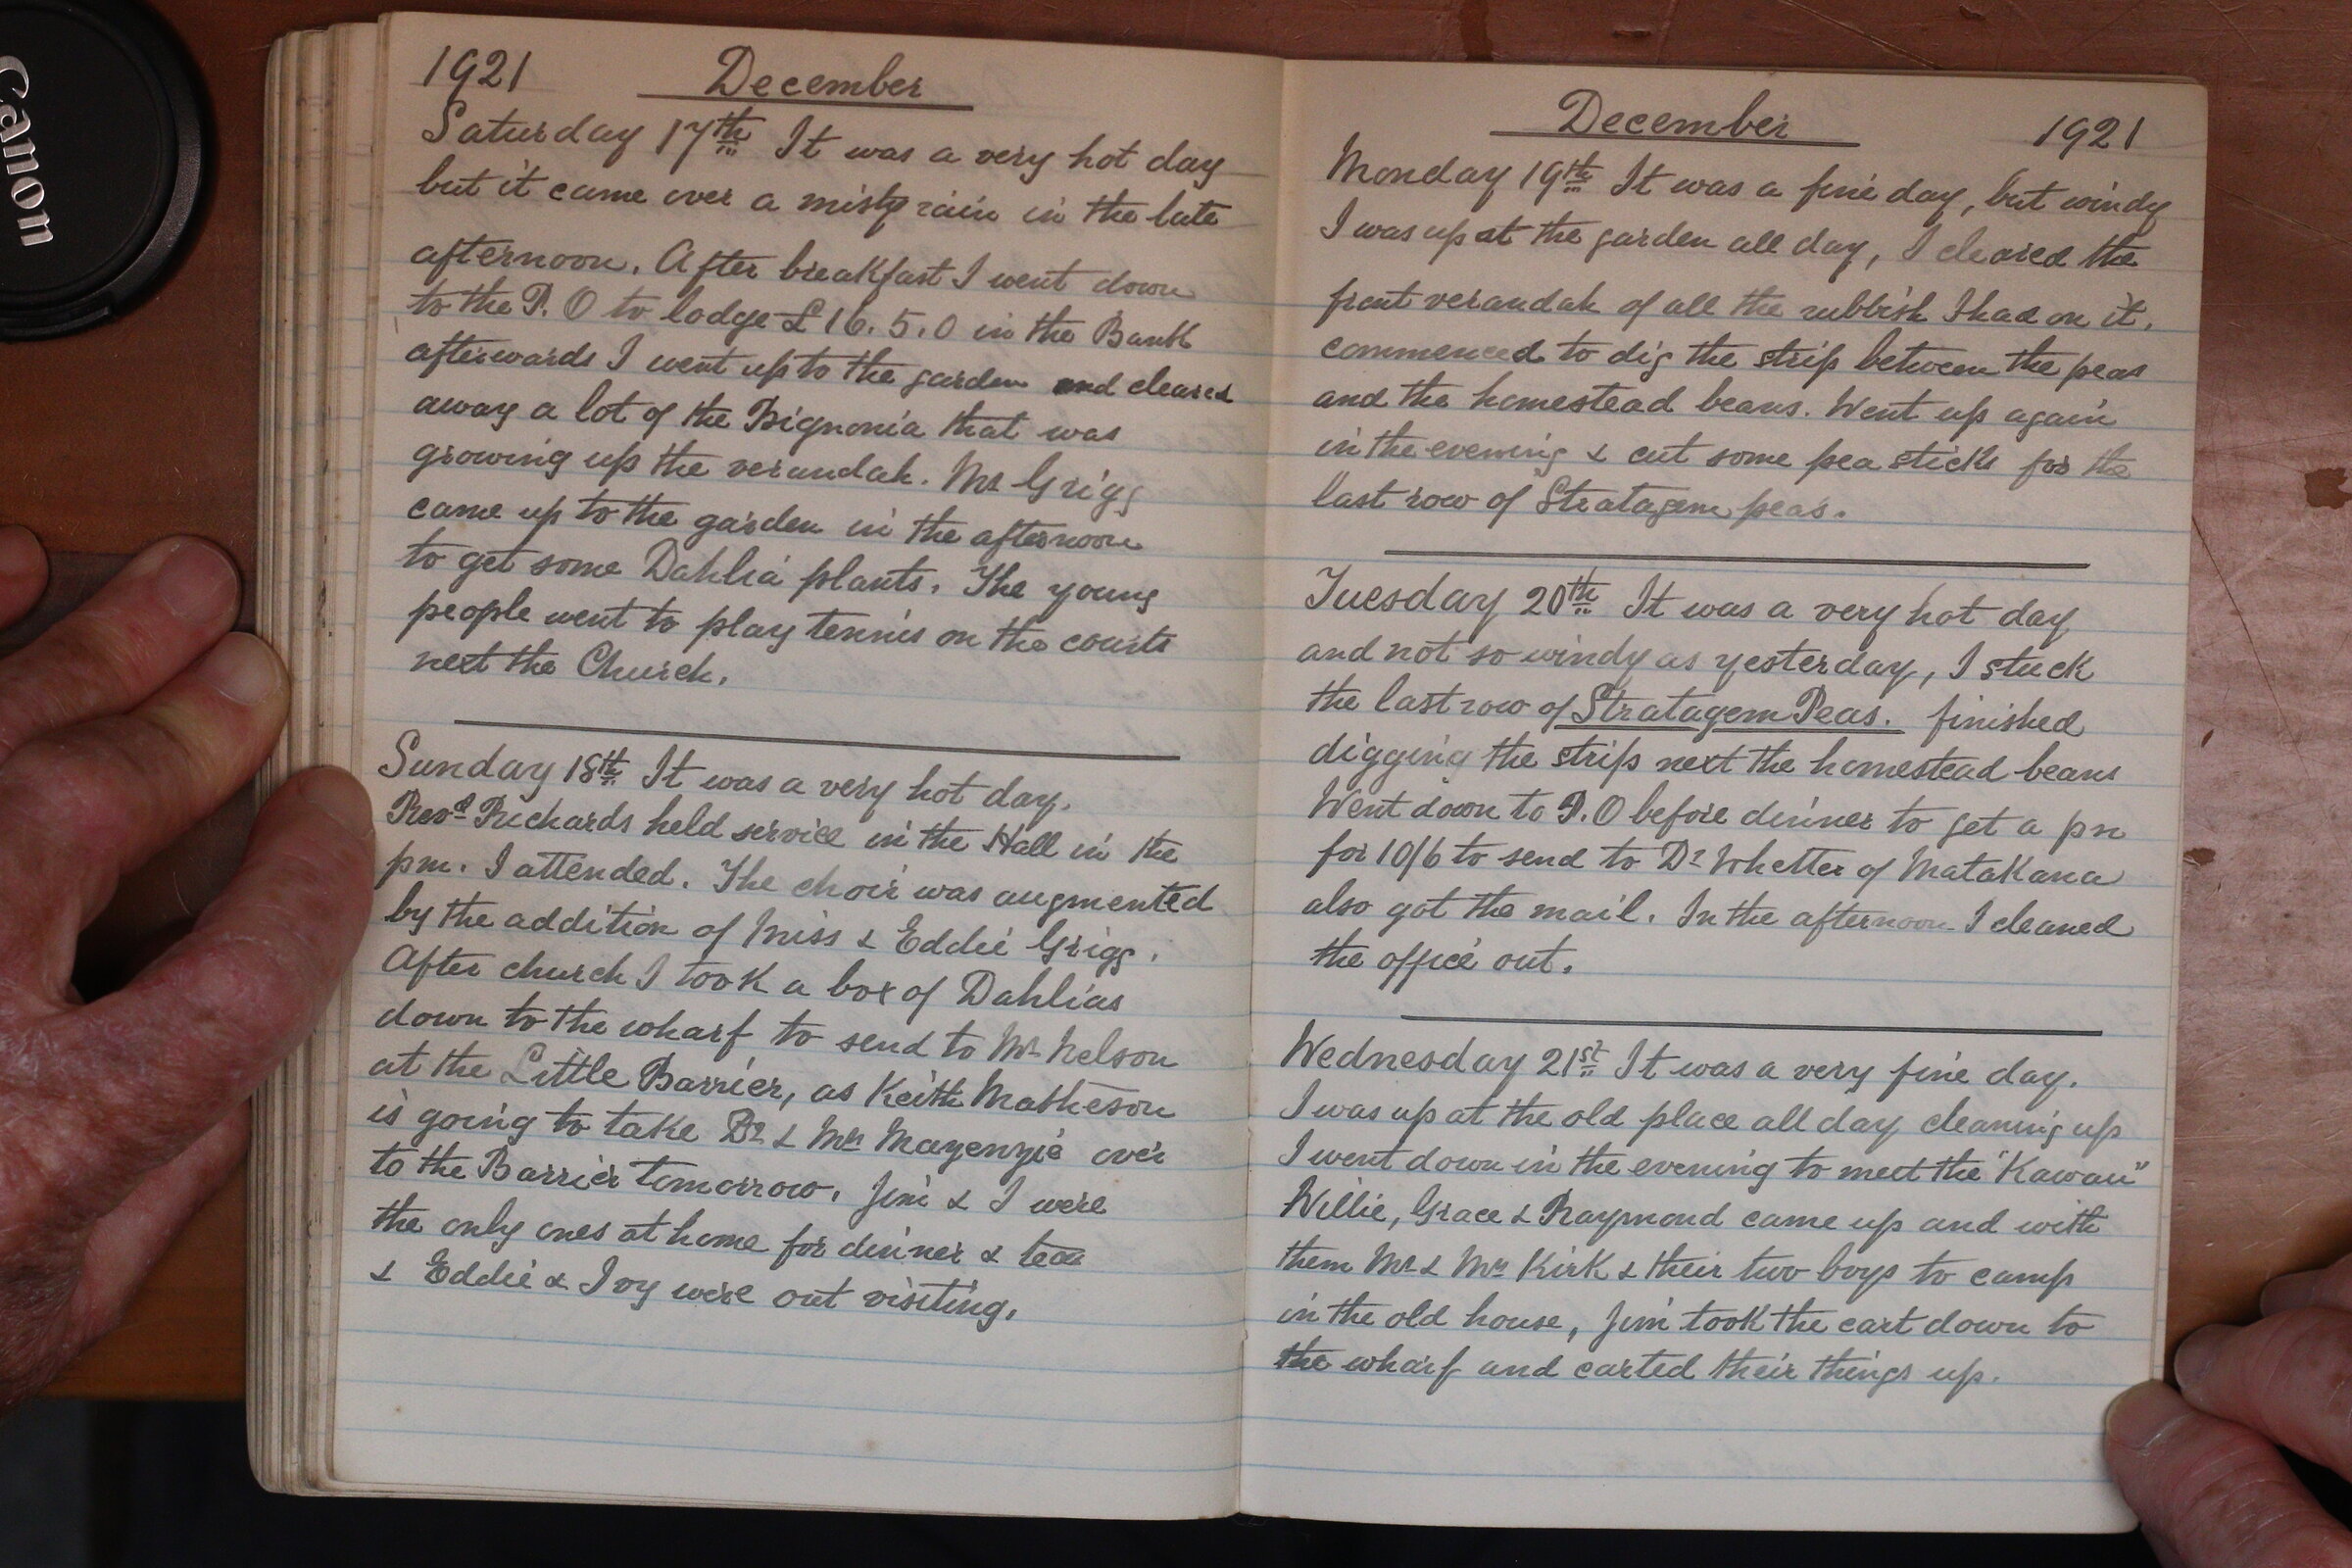 Canon
1921 December
Saturday 17th It was a very hot day
but it came over a misty rain in the late
afternoon. After breakfast I went down
to the P. O to lodge £16. 5. 0 in the Bank
afterwards I went up to the garden and cleared
away a lot of the Bignonia that was
growing up the verandah. Mr Grigg
came up to the garden in the afternoon
to get some Dahlia plants. The young
people went to play tennis on the courts
next the Church.
Sunday 18th It was a very hot day.
Revd Richards held service in the Hall in the
pm. I attended. The choir was augmented
by the addition of Miss & Eddie Grigg.
After church I took a box of Dahlias
down to the wharf to send to Mr Nelson
at the Little Barrier, as Keith Matheson
is going to take Dr & Mrs over
to the Barrier tomorrow. Jim & I were
the only ones at home for dinner & tea
& Eddie & Ivy were out visiting.
December 1921
Monday 19th It was a fine day, but windy
I was up at the garden all day, I cleared the
front verandah of all the rubbish I had on it.
commenced to dig the strip between the peas
and the homestead beans. Went up again
in the evening & cut some pea sticks for the
last row of Stratagem peas.
Tuesday 20th It was a very hot day
and not so windy as yesterday, I stuck
the last row of Stratagem Peas. finished
digging the strip next the homestead beans
Went down to P. O before dinner to get a pn
for 10/6 to send to Dr Whetter of Matakana
also got the mail. In the afternoon I cleaned
the office out.
Wednesday 21st It was a very fine day.
I was up at the old place all day cleaning up
I went down in the evening to meet the "Kawau"
Willie, Grace & Raymond came up and with
them Mr & Mrs Kirk & their two boys to camp
in the old house, Jim took the cart down to
the wharf and carted their things up.